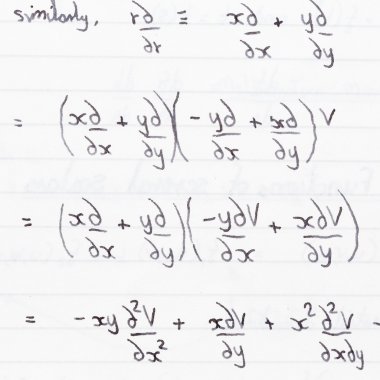 similarly, r∂/∂r ≡ x∂/∂x + y∂/∂y
= (x∂/∂x + y∂/∂y)(-y∂/∂x + x∂/∂y)V
= (x∂/∂x + y∂/∂y)(-y∂V/∂x + x∂V/∂y)
= -xy ∂²V/∂x² + x∂V/∂y + x²∂²V/∂x∂y -